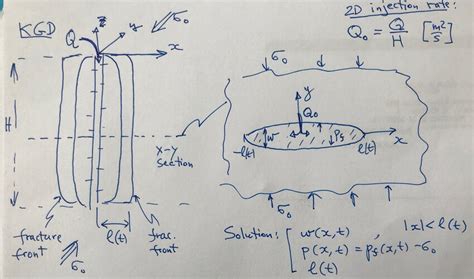 KGD
Q
z
y
x
σ₀
H
x-y
section
fracture
front
l(t)
frac.
front
σ₀
2D injection rate:
Q₀ = Q/H [m²/s]
σ₀
y
Q₀
w
p_f
-l(t)
l(t)
x
σ₀
Solution: { w(x,t) , |x|<l(t)
p(x,t) = p_f(x,t) - σ₀
l(t)